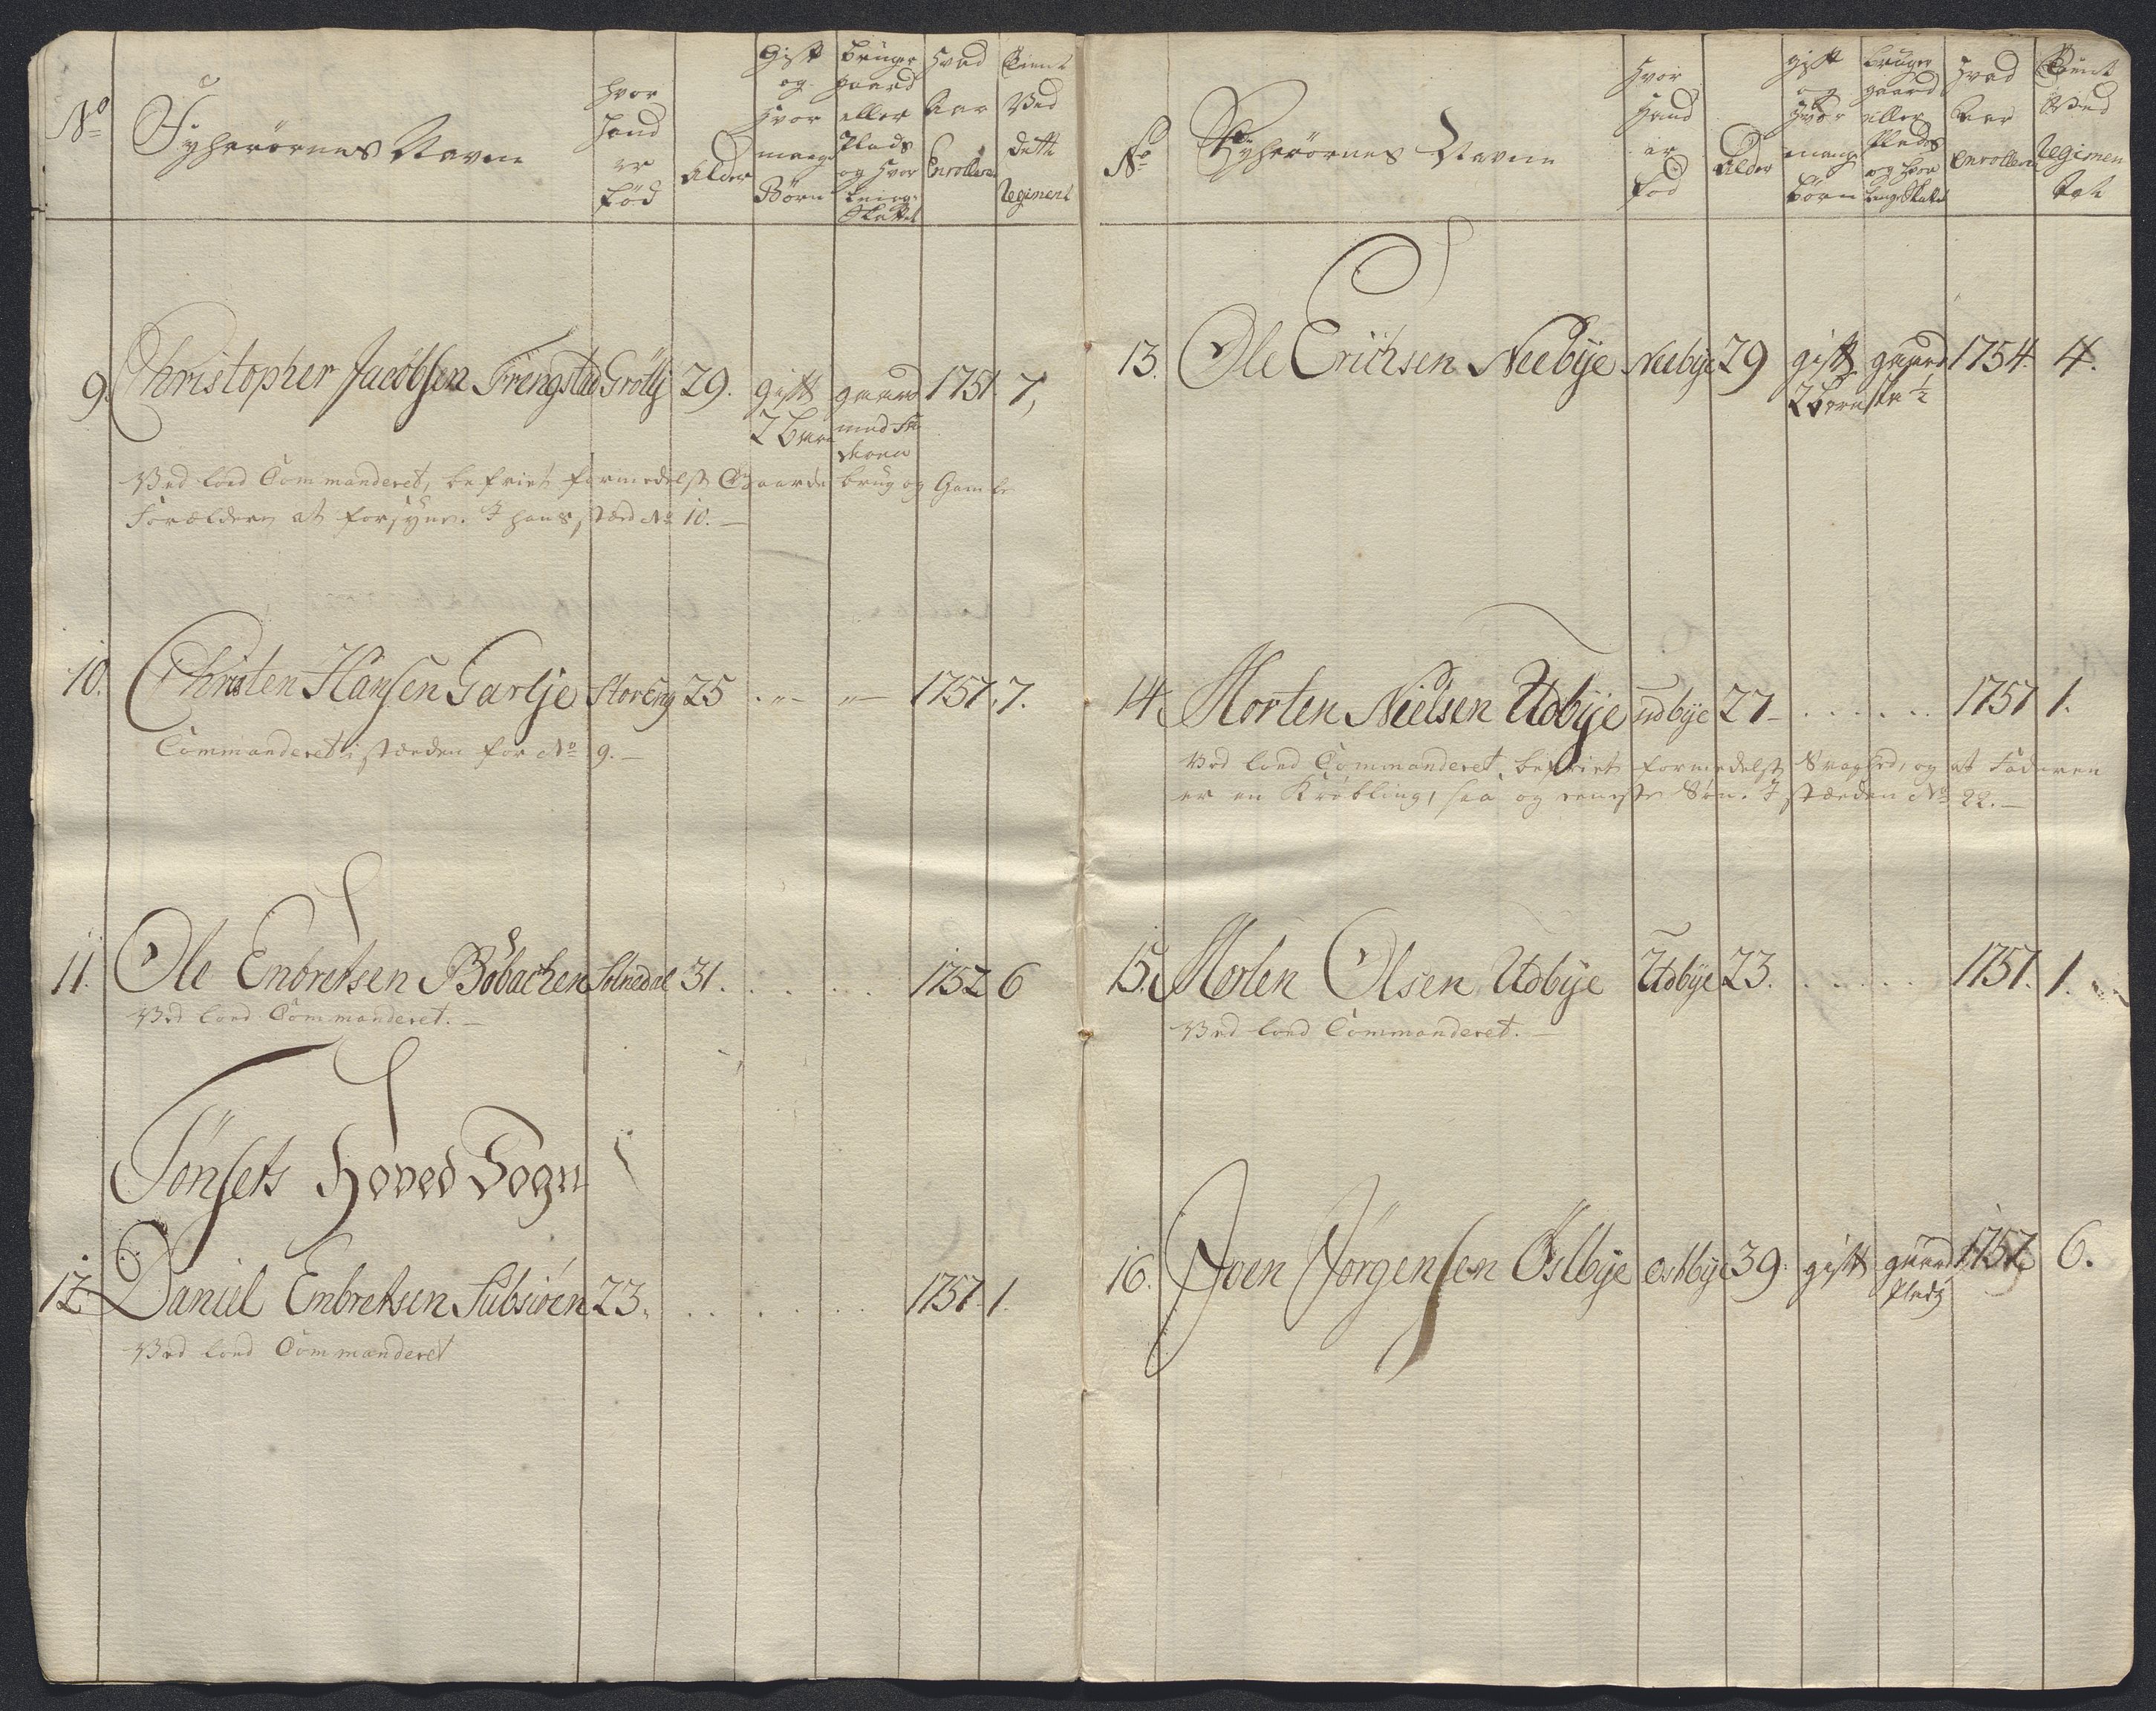 No
Schytternes Navne
hvor
hand
er
fød
Alder
gift
og
hvor
mange
Børn
bruger
gaard
eller
Plads
og hvor
Skatter
hvad
Aar
Enrollere
Tient
Ved
dette
Regiment
9. Christopher Jacobsen Frengstad Grøtli 29. gift gaard 1751. 7,
2 Børn
Ved loed Commanderet, befriet formedelst Gaards brug og Gamle
Forældre at forsyne. I hans stæd No 10.
10. Christen Hansen Garlje Storeng 25 1757. 7.
Commanderet i stæden for No 9.
11. Ole Enbretsen Bøbachen Solnedal 31. 1752 6
Ved loed Commanderet.
Tønsets Hoved Sogn
12. Daniel Embretsen Sub siøen 23. 1757. 1.
Ved loed Commanderet
No
Navne
hvor
hand
er
fød
Alder
gift
og
hvor
mange
børn
bruger
gaard
eller
Plads
og hvor
hvad
Aar
Enrollere
Tient
Ved
Regimen
tet
13. Ole Erichsen Neebye Neebye 29 gift gaard 1754. 4.
2 børn 1/2
14. Morten Nielsen Udbye udbye 27 1757 1.
Ved loed Commanderet, befriet formedelst Svaghed, og at Faderen
er en Krøbling, saa og eeneste Søn. I stæden No 22.
15. Morten Olsen Udbye Udbye 23. 1757. 1.
Ved loed Commanderet.
16. Joen Jørgensen Østbye Østbye 39. gift gaard 1757 6.
Plads